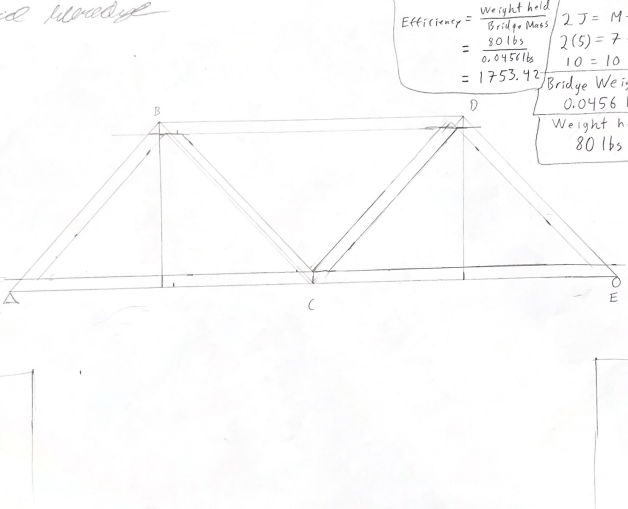 Efficiency = Weight held / Bridge Mass
= 80 lbs / 0.0456 lbs
= 1753.42
2 J = M
2(5) = 7
10 = 10
Bridge Wei
0.0456
Weight h
80 lbs
B
D
A
C
E